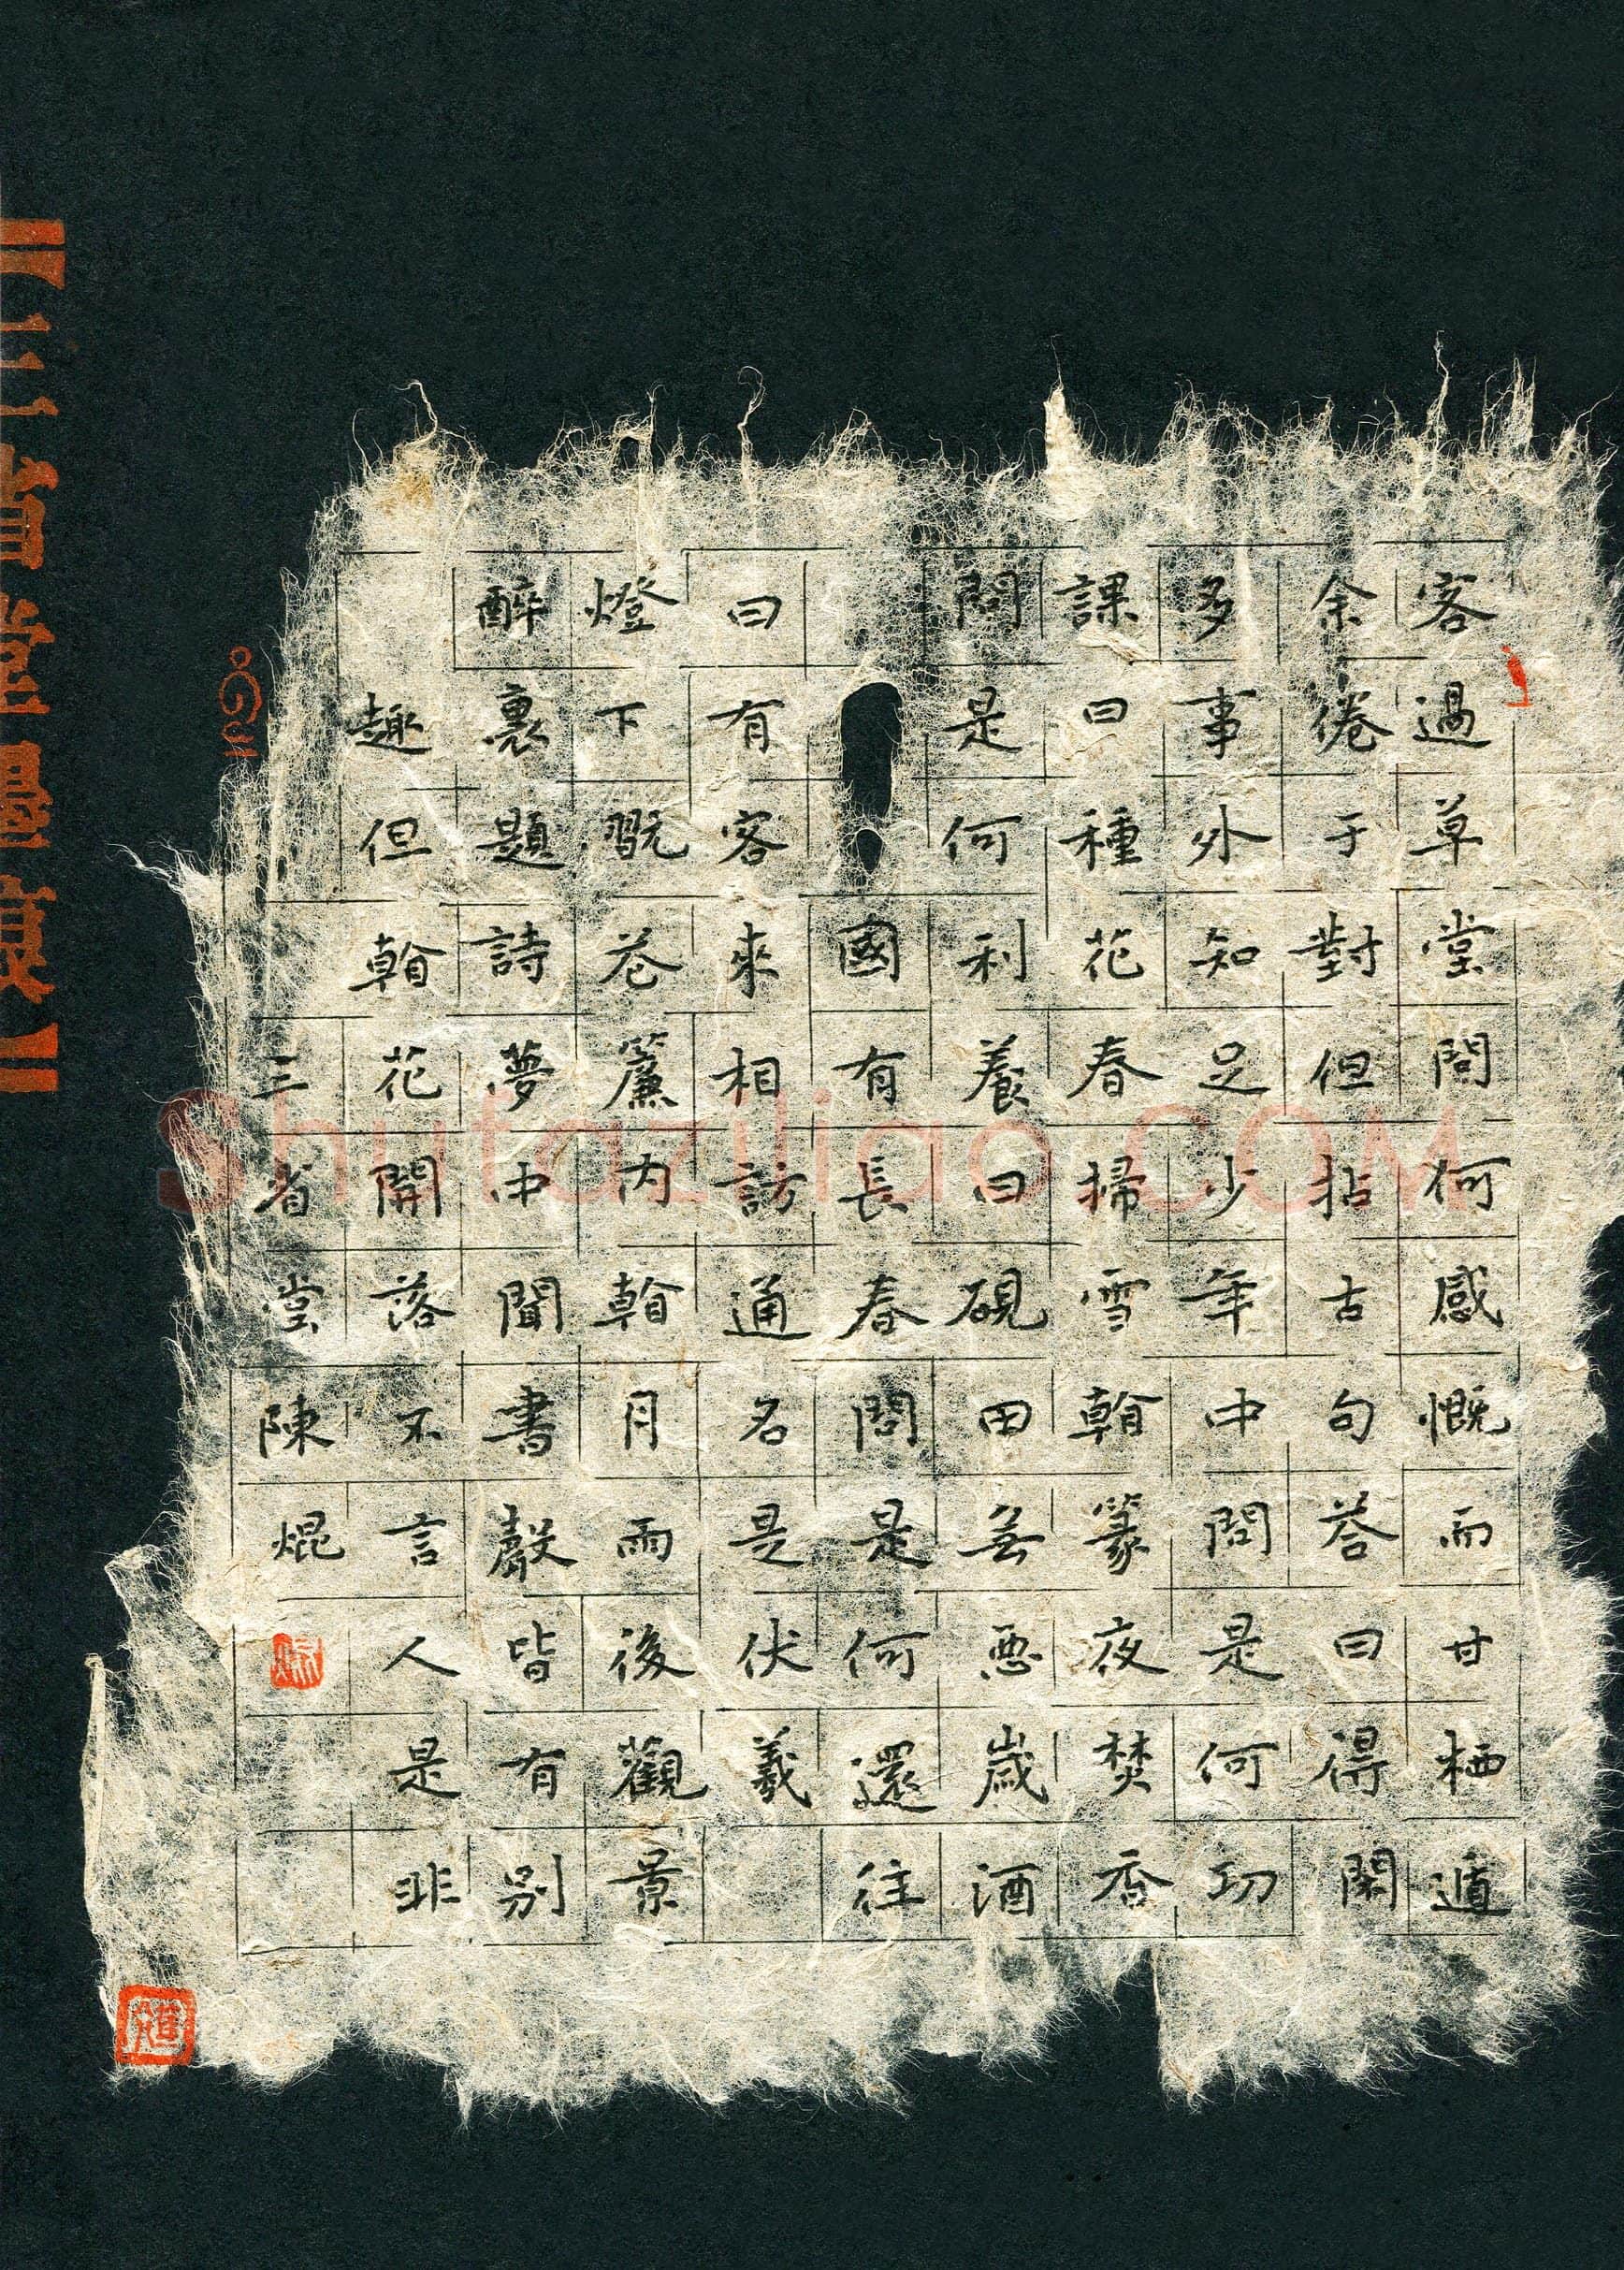 客過草堂問何感慨而甘栖遁
余倦于對但拈古句答曰得閑
多事外知足少年中問是何功
課曰種花春掃雪看篆夜焚香
問是何利養曰硯田無惡歲酒
國有長春問是何還往
曰有客來相訪通名是伏羲
燈下翫花簾内看月雨後觀景
醉裏題詩夢中聞書聲皆有別
趣但看花開落不言人是非
三省堂陳焜
【三省堂墨痕】
Shutaziliao.COM